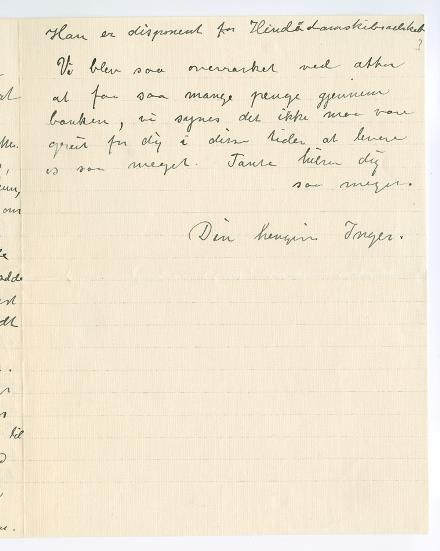 Han er disponent for Hindödampskibsselskab
?
Vi blev saa overrasket ved atter
at faa saa mange penge gjennem
banken, vi synes det ikke maa være
greit for dig i disse tider at levere
os saa meget. Tante hilser dig
saa meget.
Din hengivne Inger.